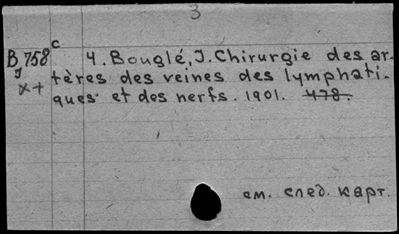 3
B 758 c 4. Bouglé, J. Chirurgie des ar-
tères des veines des lymphati-
ques et des nerfs. 1901. 478.
см. след. карт.